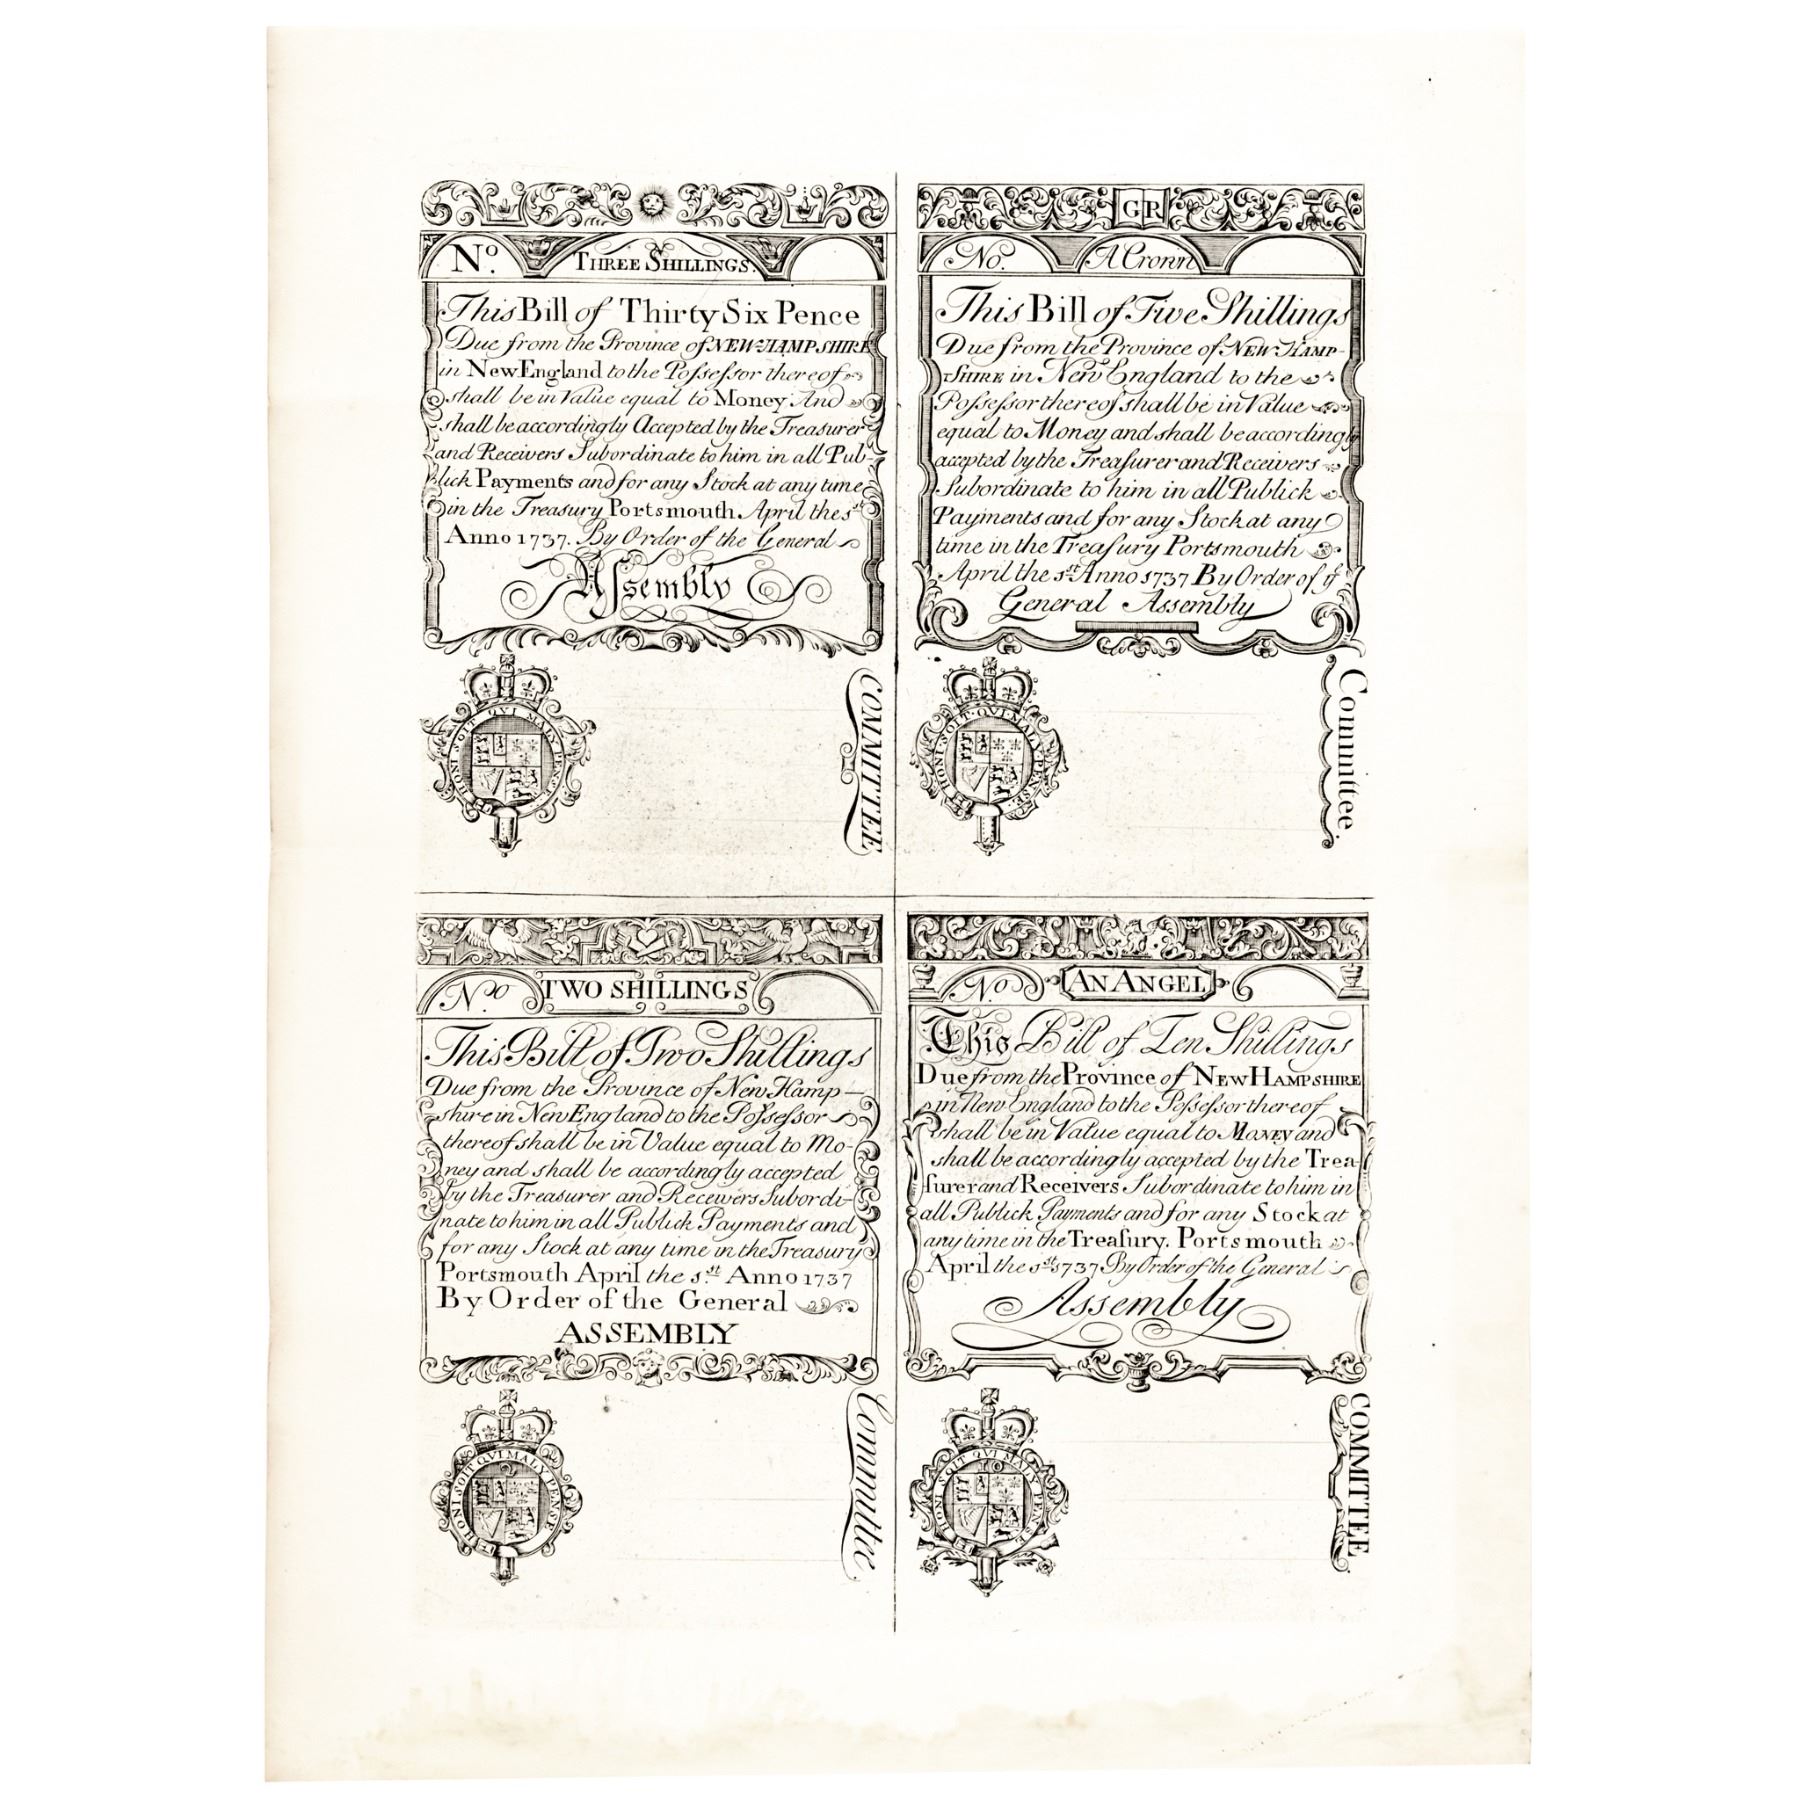 No.
THREE SHILLINGS.
This Bill of Thirty Six Pence
Due from the Province of NEW-HAMPSHIRE
in New England to the Possessor thereof
shall be in Value equal to Money And
shall be accordingly Accepted by the Treasurer
and Receivers Subordinate to him in all Pub-
lick Payments and for any Stock at any time
in the Treasury Portsmouth April the 1st
Anno 1737. By Order of the General
Assembly
HONI SOIT QVI MALY PENSE
COMMITTEE
GR
No.
A Crown
This Bill of Five Shillings
Due from the Province of NEW HAMP-
SHIRE in New England to the
Possessor thereof shall be in Value
equal to Money and shall be accordingly
accepted by the Treasurer and Receivers
Subordinate to him in all Publick
Payments and for any Stock at any
time in the Treasury Portsmouth
April the 1st Anno 1737 By Order of ye
General Assembly
HONI SOIT QVI MALY PENSE
Committee.
No
TWO SHILLINGS
This Bill of Two Shillings
Due from the Province of New Hamp-
shire in New England to the Possessor
thereof shall be in Value equal to Mo-
ney and shall be accordingly accepted
by the Treasurer and Receivers Subordi-
nate to him in all Publick Payments and
for any Stock at any time in the Treasury
Portsmouth April the 1st Anno 1737
By Order of the General
ASSEMBLY
HONI SOIT QVI MALY PENSE
2
Committee.
No
AN ANGEL
This Bill of Ten Shillings
Due from the Province of NEW HAMPSHIRE
in New England to the Possessor thereof
shall be in Value equal to MONEY and
shall be accordingly accepted by the Trea-
surer and Receivers Subordinate to him in
all Publick Payments and for any Stock at
any time in the Treasury. Portsmouth
April the 1st 1737 By Order of the General
Assembly
HONI SOIT QVI MALY PENSE
10
COMMITTEE.